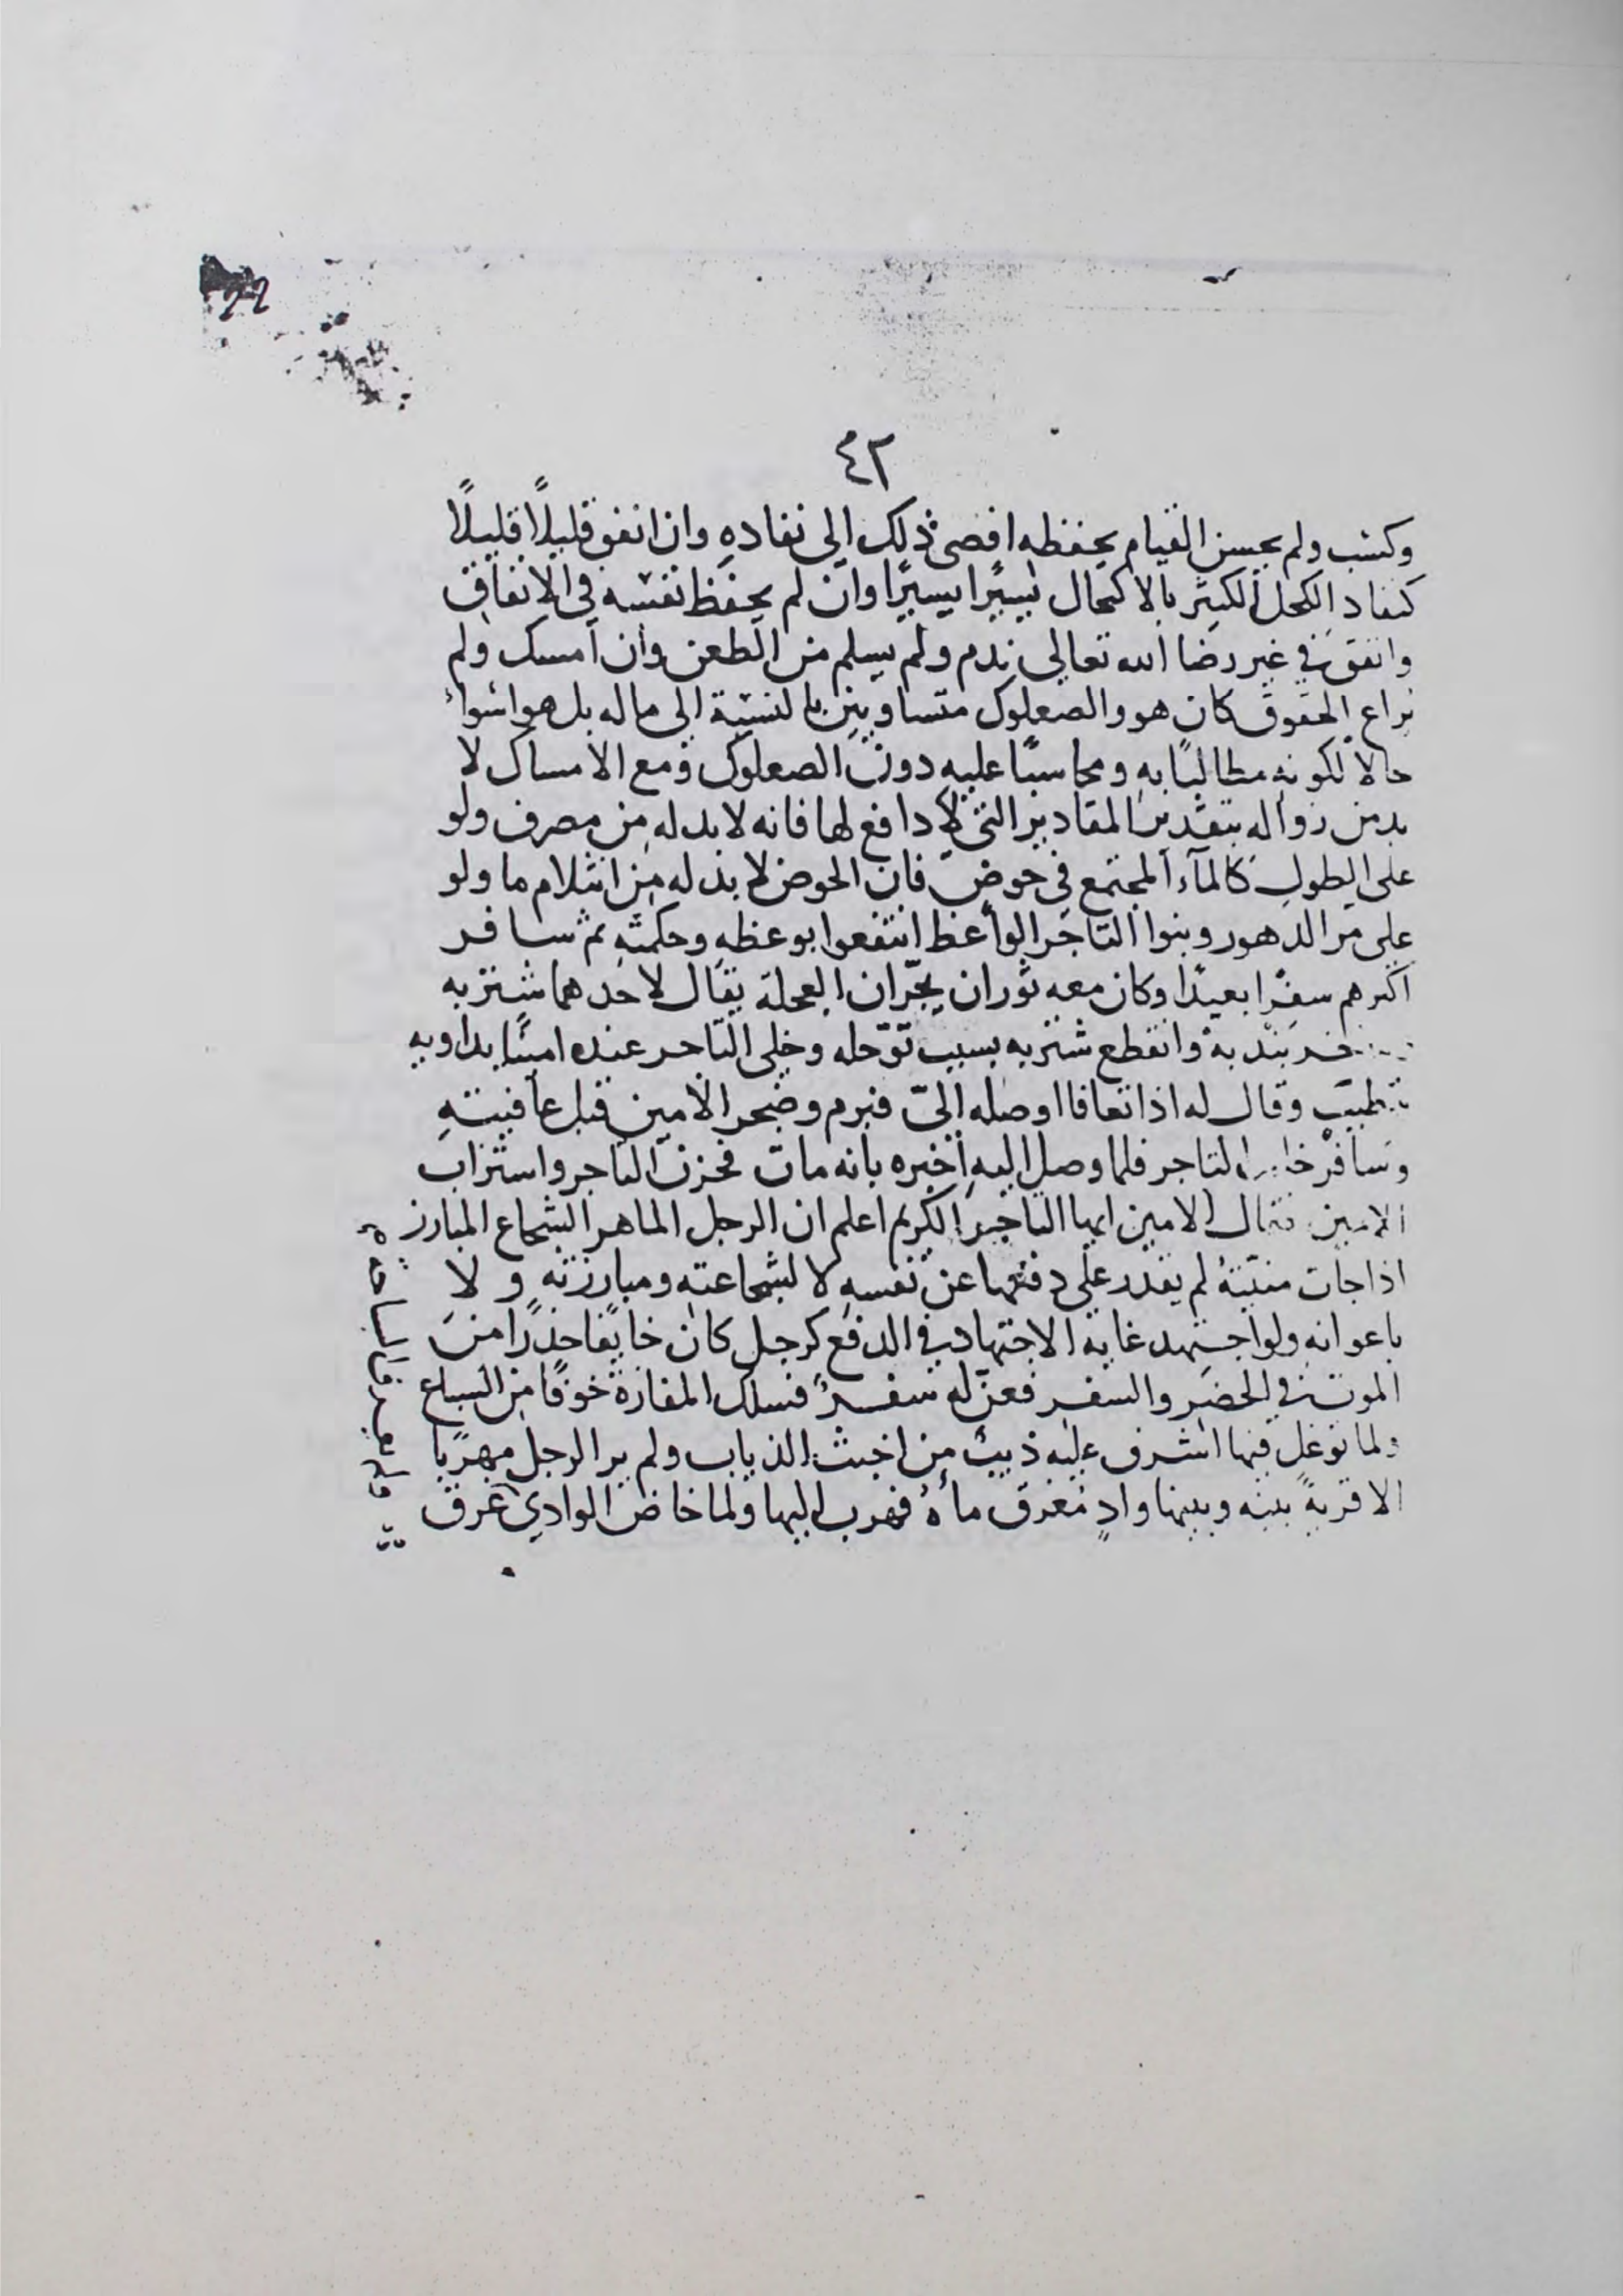 ٤٢
وكسب ولم يحسن القيام بحفظه افضى ذلك الى نفاده وان انفق قليلًا قليلًا
كنفاد الكحل الكثير بالاكتحال يسيرًا يسيرًا وان لم يحفظ نفسه في الانفاق
وانفق في غير رضا الله تعالى ندم ولم يسلم من الطعن وان امسك ولم
يراع الحقوق كان هو والصعلوك متساويين بالنسبة الى ماله بل هو اسواء
حالا لكونه مطالبًا به ومحاسبًا عليه دون الصعلوك ومع الامساك لا
بد من زواله بتقدير المقادير التي لا دافع لها فانه لا بد له من مصرف ولو
على الطول كالمآء المجتمع في حوض فان الحوض لا بد له من انثلام ما ولو
على مر الدهور وبنوا التاجر الواعظ انتفعوا بوعظه وحكمته ثم سافر
اكبرهم سفرًا بعيدًا وكان معه ثوران يجرّان العجلة يقال لاحدهما شتربه
بندبه وانقطع شتربه بسبب توحله وخلى التاجر عنده امينًا يداويه
بطبيب وقال له اذا تعافا اوصله الىّ فبرم وضجر الامين قبل عافيته
وسافر التاجر فلما وصل اليه اخبره بانه مات فحزن التاجر واستراب
الامين فقال الامين ايها التاجر الكريم اعلم ان الرجل الماهر الشجاع المبارز
اذا جات منيته لم يقدر على دفعها عن نفسه لا لشجاعته ومبارزته ولا
باعوانه ولو اجتهد غاية الاجتهاد في الدفع كرجل كان خايفًا حذرًا من
الموت في الحضر والسفر فعنّ له سفرٌ فسلك المفازة خوفًا من السباع
ولما توغل فيها اشرف عليه ذيب من اخبث الذياب ولم ير الرجل مهربًا
الا قرية بينه وبينها وادٍ مغرق ماءه فهرب اليها ولما خاض الوادي غرق